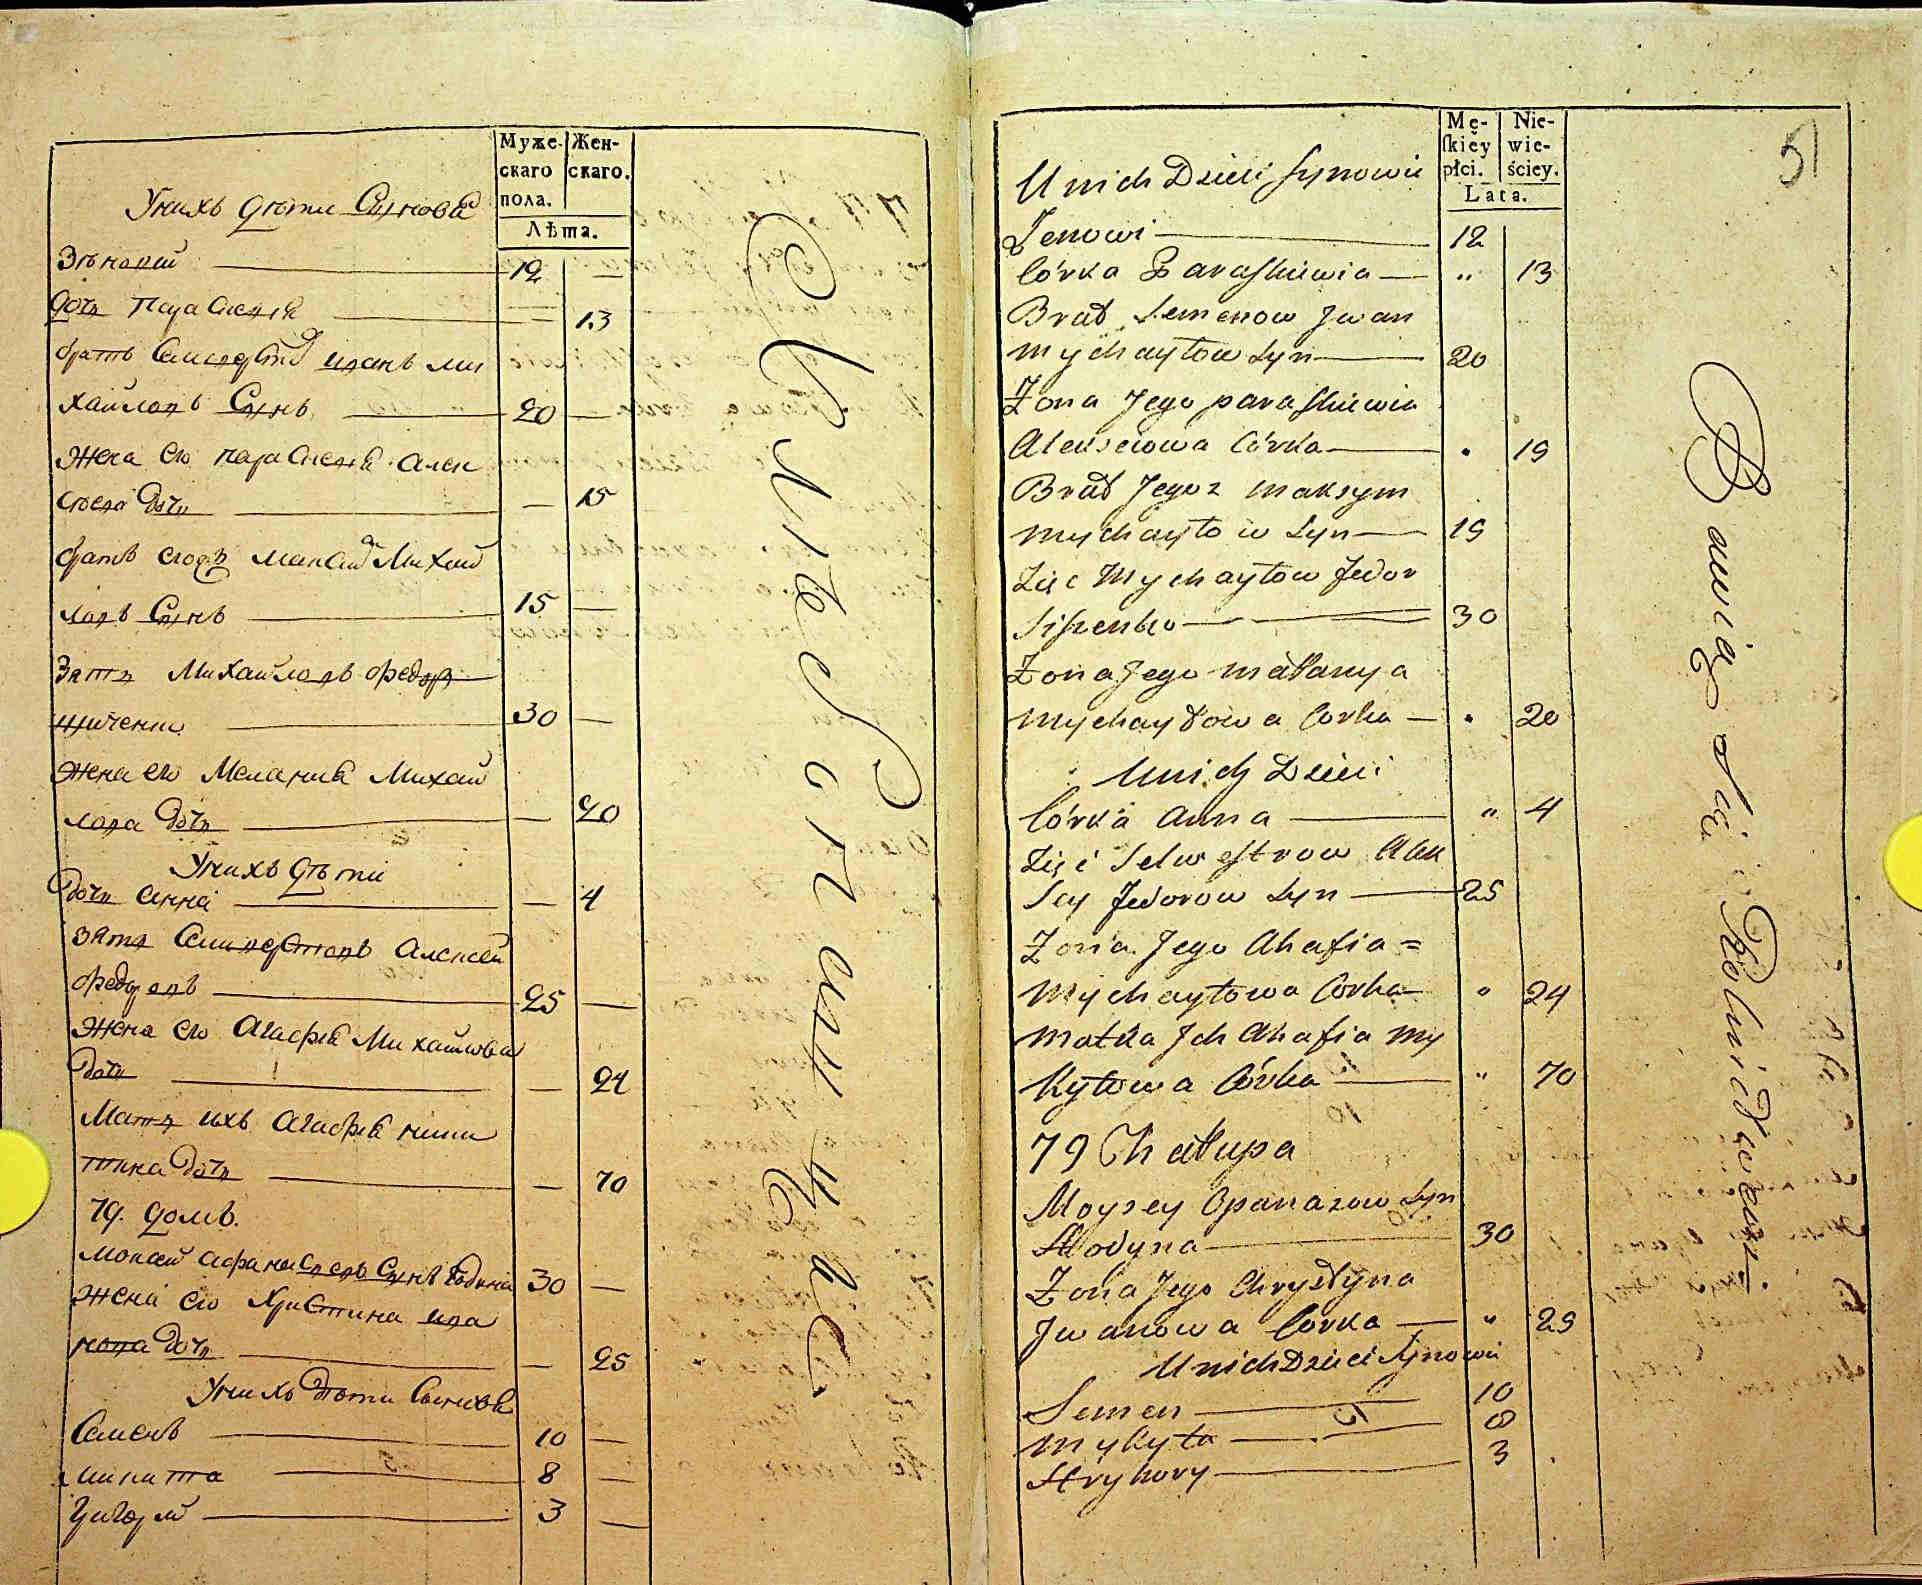 Муже-
скаго
пола.
Жен-
скаго.
Лѣта.
Унихъ дѣти Сыновя
Зѣновий 12
дочь Параскевия 13
братъ Иванъ Ми
хайловъ Сынъ 20
жена его Параскевия Алек
сѣева дочь 15
братъ его Максим Михай
ловъ Сынъ 15
Зять Михайловъ Федор
30
жена его Мелания Михай
лова дочь 20
Унихъ дѣти
дочь Анна 4
зять Алексей
Федоровъ 25
жена его Агафия Михайлова
дочь 24
Мать ихъ Агафия Ники
тина дочь 70
79. домъ.
Мойсей Афанасиевъ Сынъ Година 30
жена его Христина Ива
нова дочь 25
Унихъ дѣти Сыновя
Семенъ 10
Микита 8
Григорий 3
Mę-
ſkiey
płci.
Nie-
wie-
ściey.
Lata.
51
U nich Dzieci Synowie
Zenowi 12
Córka Paraskiewia " 13
Brat Semenow Jwan
Mychayłow Syn 20
Żona Jego Paraskiewia
Alexseiowa Córka " 19
Brat Jegoz Maksym
Mychayło w Syn 19
Zięć Mychayłow Fedor
30
Żona Jego Małanya
Mychayłowa Corka " 20
U nich Dzieci
Córka Anna " 4
Zięć Selwestrow Alek
sey Fedorow Syn 25
Żona Jego Ahafia =
Mychayłowa Corka " 24
Matka Jch Ahafia My
kytowa Córka " 70
79 Chałupa
Moysey Opanazow Syn
Hodyna 30
Żona Jego Chrystyna
Jwanowa Corka " 25
U nich Dzieci Synowie
Semen 10
Mykyta 8
Hryhory 3
Bawią się Rolnictwem.